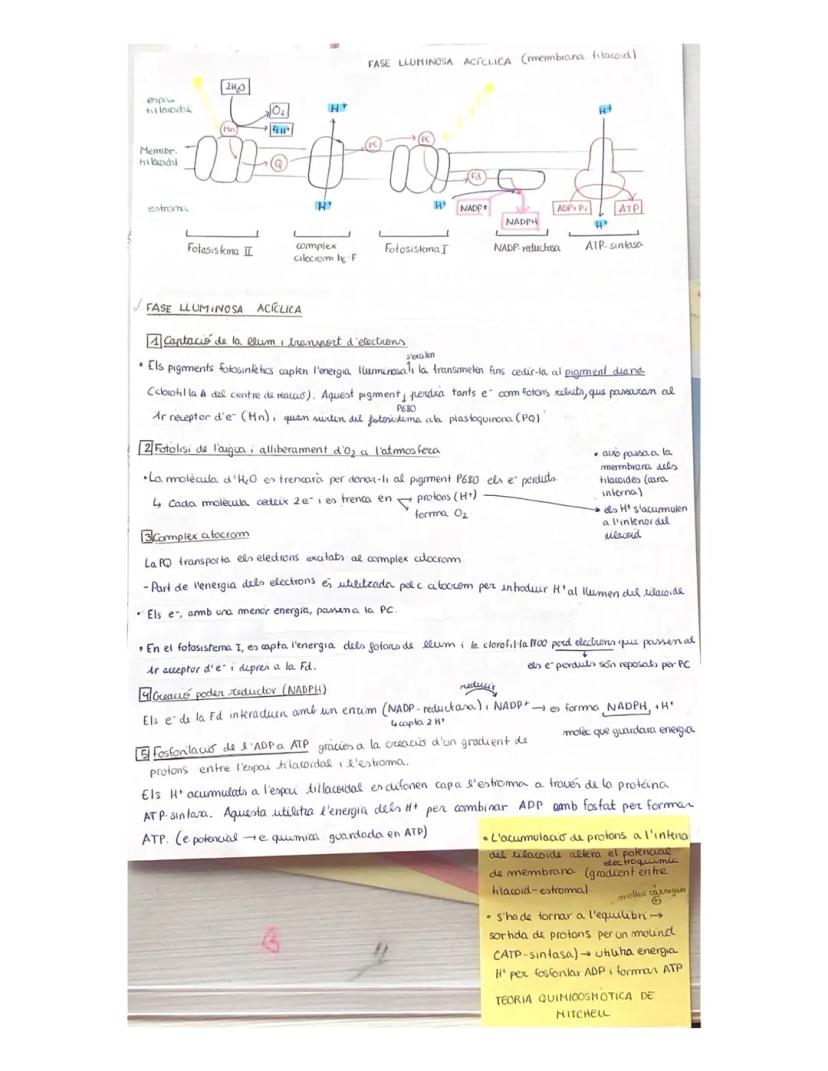 FASE LLUMINOSA ACÍCLICA (membrana tilacoid)
2H₂O
espai
tilacoidal
O₂
4H⁺
H⁺
H⁺
Mn
Q
PC
PC
Fd
Membr.
tilacoidal
estroma
H⁺
H⁺
NADP⁺
NADPH
ADP+Pi
ATP
H⁺
Fotosistema II
complex
citocrom b₆-F
Fotosistema I
NADP-reductasa
ATP-sintasa
FASE LLUMINOSA ACÍCLICA
1 Captació de la llum i transport d'electrons
s'exciten
• Els pigments fotosintètics capten l'energia lluminosa i la transmeten fins cedir-la al pigment diana
(clorofil·la A del centre de reacció). Aquest pigment, perdrà tants e⁻ com fotons rebuts, que passaran al
P680
1r receptor d'e⁻ (Mn), quan surten del fotosistema a la plastoquinona (PQ)
2 Fotòlisi de l'aigua i alliberament d'O₂ a l'atmosfera
• La molècula d'H₂O es trencarà per donar-li al pigment P680 els e⁻ perduts
↳ Cada molècula cedeix 2e⁻ i es trenca en → protons (H⁺)
→ forma O₂
• això passa a la
membrana dels
tilacoides (cara
interna)
→ els H⁺ s'acumulen
a l'interior del
tilacoid
3 Complex citocrom
La PQ transporta els electrons excitats al complex citocrom
- Part de l'energia dels electrons és utilitzada pel c. citocrom per introduir H⁺ al llumen del tilacoide
• Els e⁻, amb una menor energia, passen a la PC.
• En el fotosistema I, es capta l'energia dels fotons de llum i la clorofil·la P700 perd electrons que passen al
1r acceptor d'e⁻ i després a la Fd.
els e⁻ perduts són reposats per PC
4 Creació poder reductor (NADPH)
reducció
Els e⁻ de la Fd interaduen amb un enzim (NADP-reductasa) i NADP⁺ → es forma NADPH, + H⁺
↳ capta 2 H⁺
molèc que guardarà energia
5 Fosforilació de l'ADP a ATP gràcies a la creació d'un gradient de
protons entre l'espai tilacoidal i l'estroma.
Els H⁺ acumulats a l'espai tillacoidal es difonen cap a l'estroma a través de la proteïna
ATP-sintasa. Aquesta utilitza l'energia dels H⁺ per combinar ADP amb fosfat per formar
ATP. (e. potencial → e. química guardada en ATP)
• L'acumulació de protons a l'interio
del tilacoide altera el potencial
electroquímic
de membrana (gradient entre
tilacoid-estroma)
moltes càrregues
⊕
• S'ha de tornar a l'equilibri →
sortida de protons per un molinet
(ATP-sintasa) → utilitza energia
H⁺ per fosforilar ADP i formar ATP
TEORIA QUIMIOOSMÒTICA DE
MITCHELL